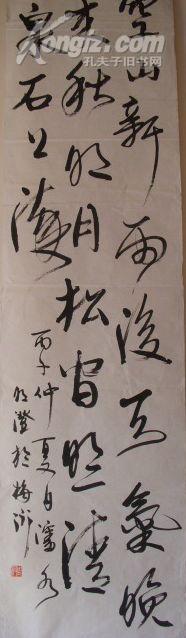 空山新雨後天氣晚
来秋明月松間照清
泉石上流
丙子仲夏月瀋水
明澄於梅
Kongfz.com
孔夫子旧书网